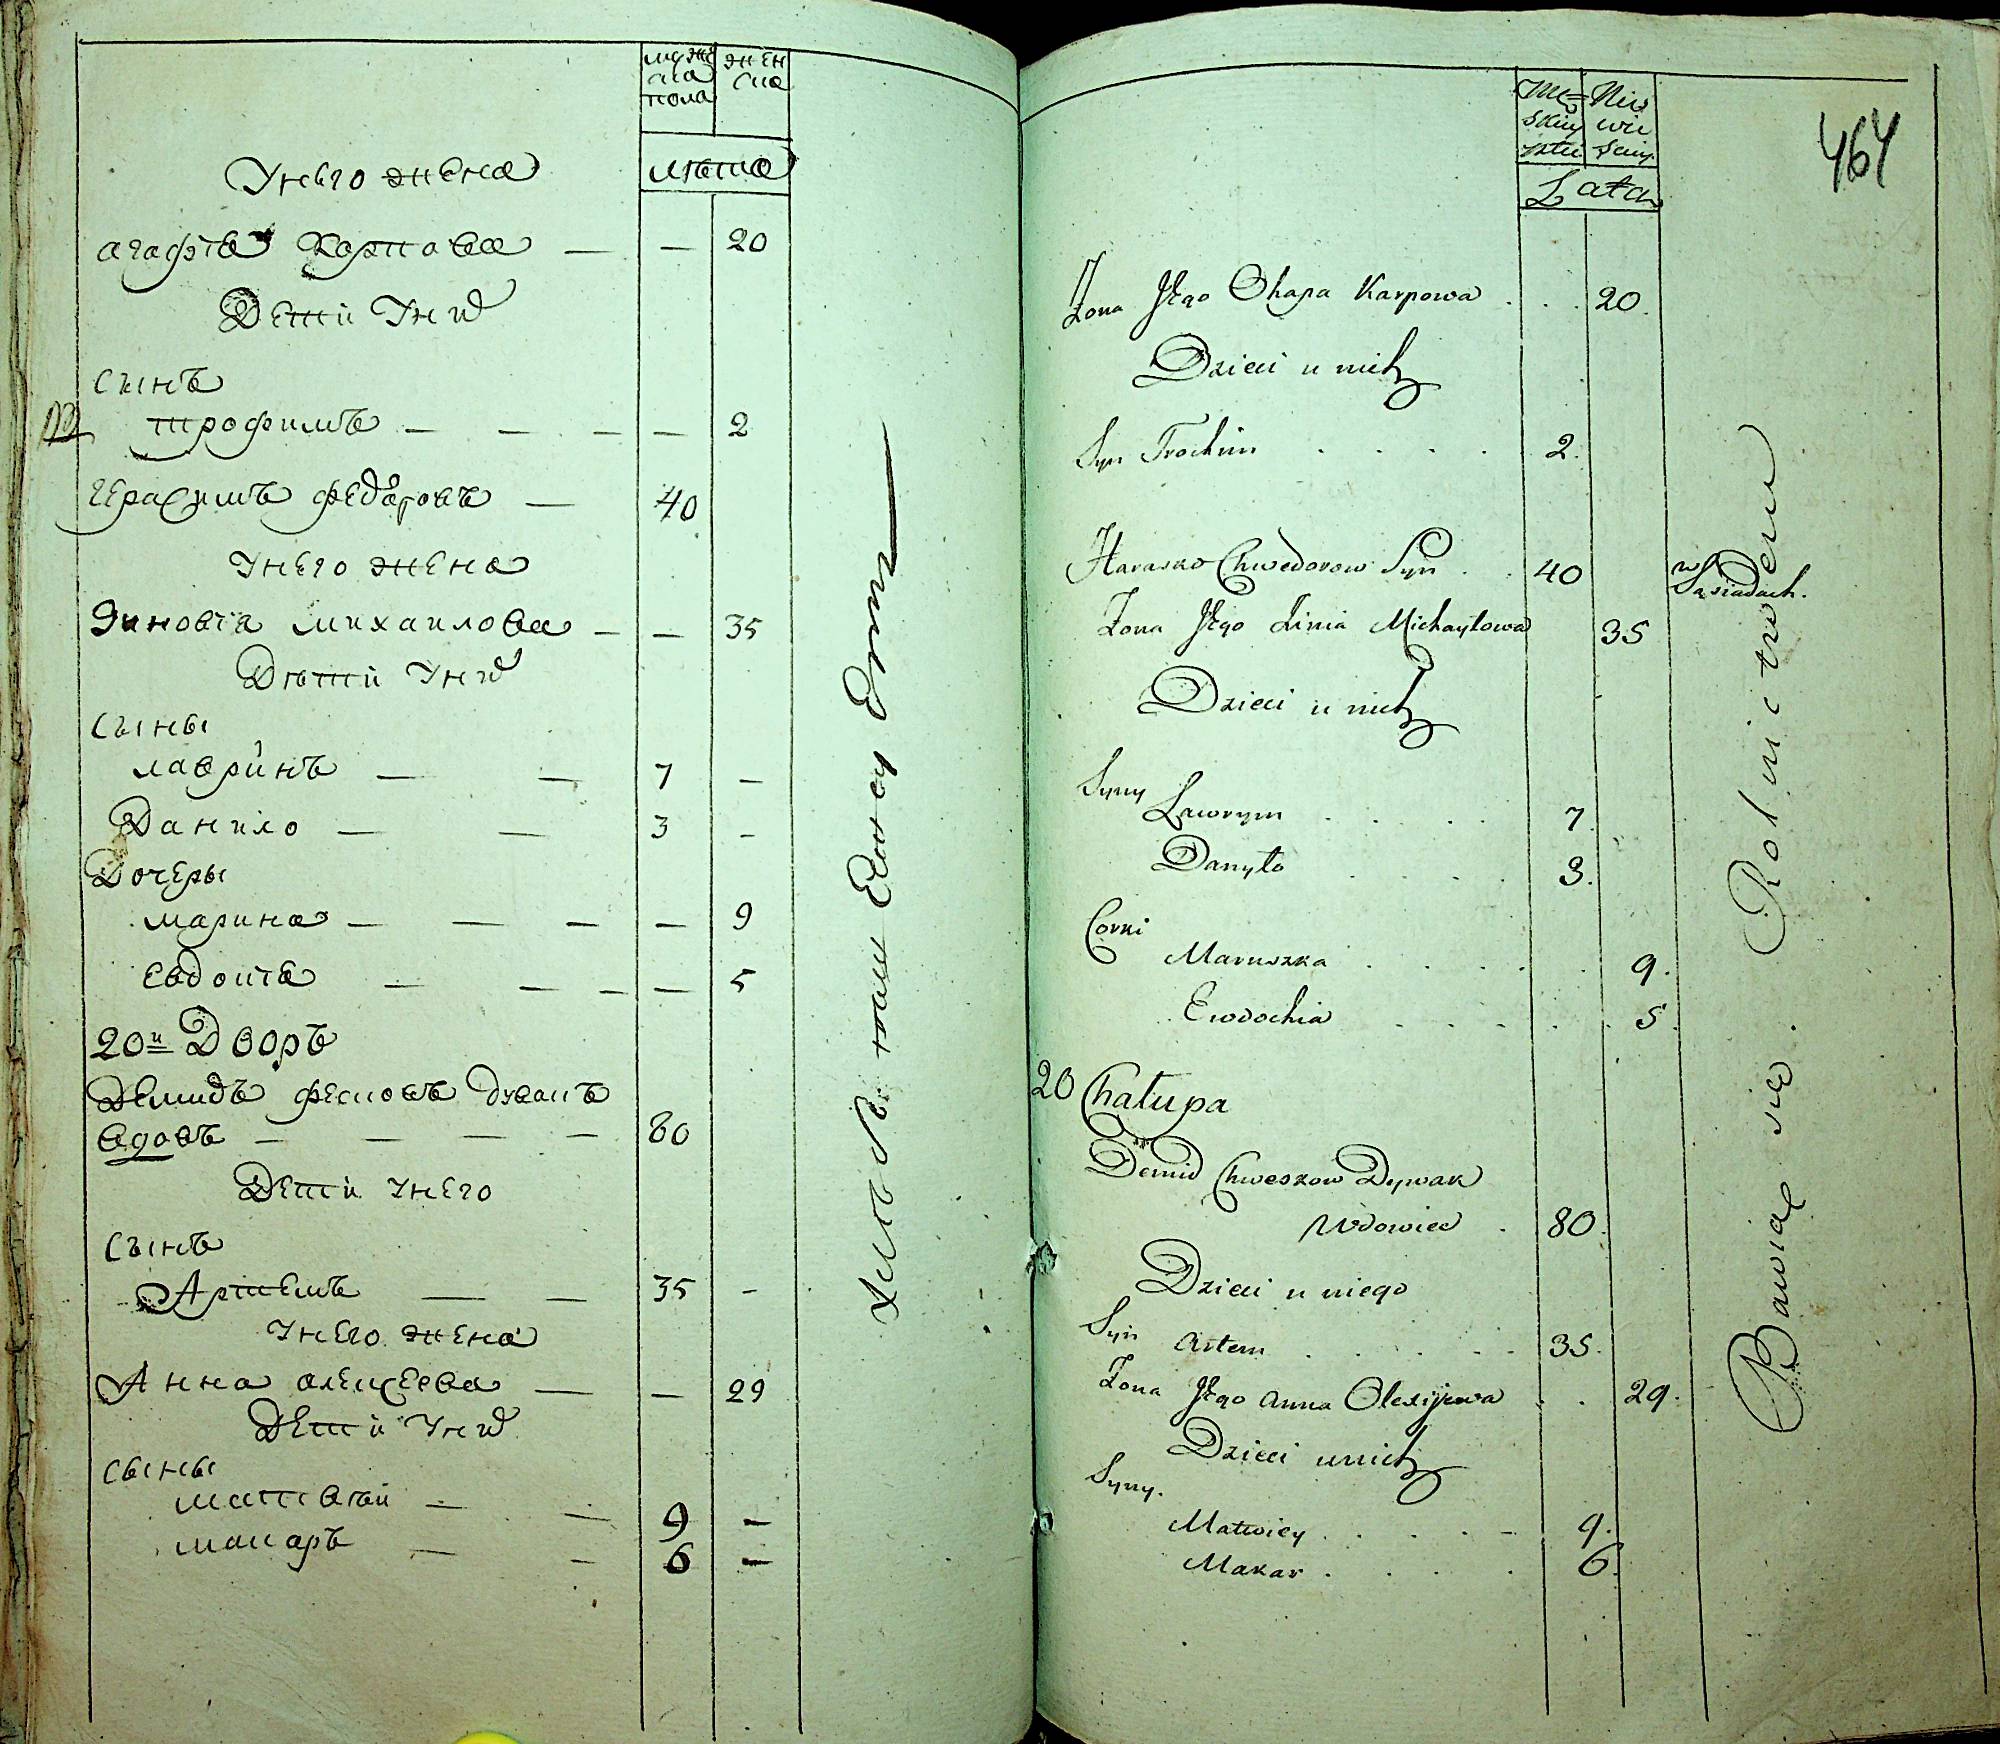 мужска пола
женска
лѣта
Унего жена
агафѣя Карпова — — 20
Дети Уних
Сынъ
трофимъ — — — — 2
Герасимъ федоровъ — 40
Унего жена
Зиновія михаилова — — 35
Дѣти Уних
Сыны
лавринъ — — 7 —
Данило — — 3 —
Дочеры
марина — — — — 9
Евдокія — — — — 5
20й Дворъ
Демидъ феськовъ дывакъ
вдовъ — — — — 80
Дети Унего
Сынъ
Артемъ — — 35 —
Унего жена
Анна алексеева — — 29
Дети Уних
Сыны
матвѣй — — 9 —
макаръ — — 6 —
464
Męzskiey płci
Niewieściey
Lata
Zona Jego Ohapa Karpowa . . . 20.
Dzieci u nich
Syn Trochim . . . . 2.
Harasko Chwedorow Syn . . 40
w Sąsiadach.
Zona Jego Zinia Michayłowa 35
Dzieci u nich
Syny
Lawrym . . . . 7.
Danyło . . . . 3.
Corki
Maruszka . . . . . 9.
Ewdochia . . . . . 5.
20 Chałupa
Demid Chweskow Dywak
Wdowiec . 80.
Dzieci u niego
Syn Artem . . . . . 35.
Zona Jego Anna Olexijewa . . 29.
Dzieci unich
Syny.
Matwiey . . . . 9.
Makar . . . . 6.
Bawiąc się. Rolnictwem